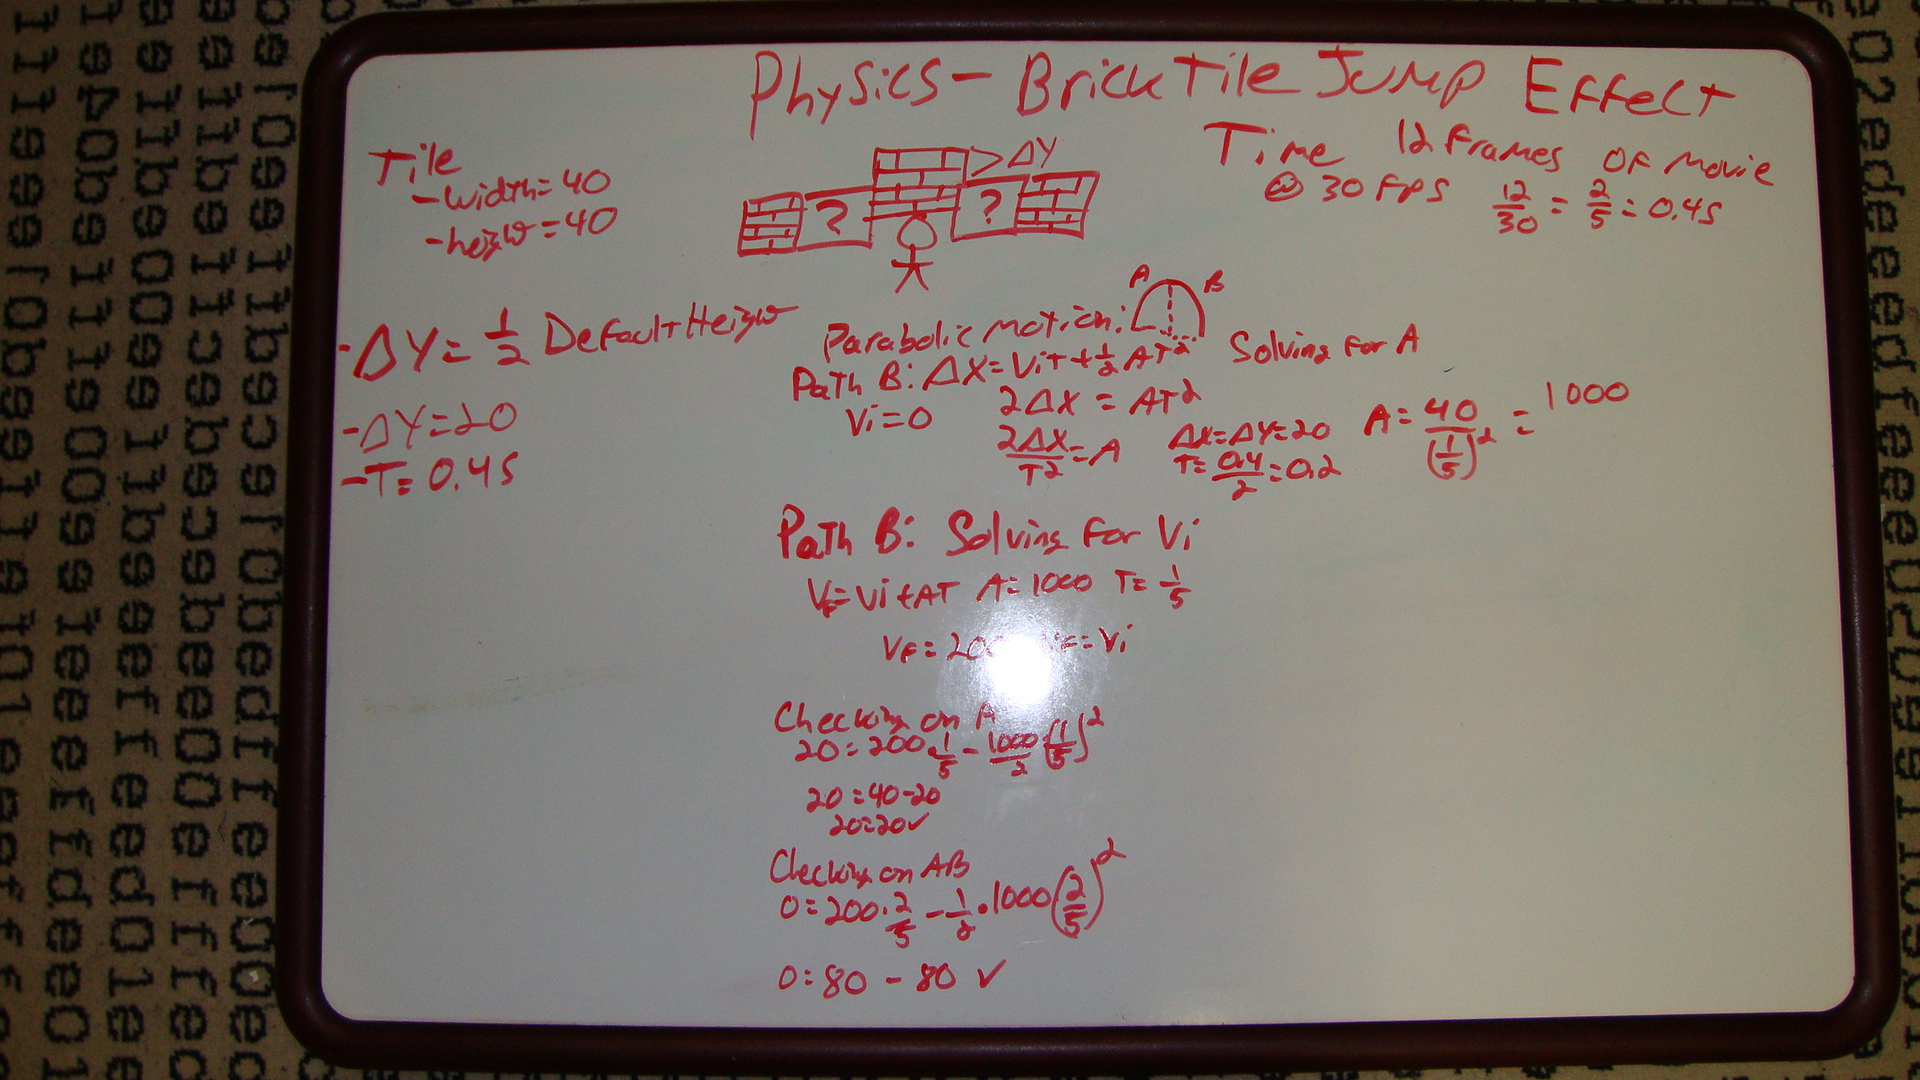 Physics - Brick Tile Jump Effect
Tile
- width = 40
- height = 40
> ΔY
? ?
Time 12 frames of movie
@ 30 FPS 12/30 = 2/5 = 0.4s
- ΔY = 1/2 Default Height
- ΔY = 20
- T = 0.4s
A B
Parabolic motion:
Path B: ΔX = ViT + 1/2 AT² Solving for A
Vi = 0 2ΔX = AT²
2ΔX/T² = A ΔX = ΔY = 20 A = 40/(1/5)² = 1000
T = 0.4/2 = 0.2
Path B: Solving for Vi
VF = Vi + AT A = 1000 T = 1/5
VF = 200 = Vi
Checking on A
20 = 200 · 1/5 - 1000/2 (1/5)²
20 = 40 - 20
20 = 20 ✓
Checking on AB
0 = 200 · 2/5 - 1/2 · 1000 (2/5)²
0 = 80 - 80 ✓